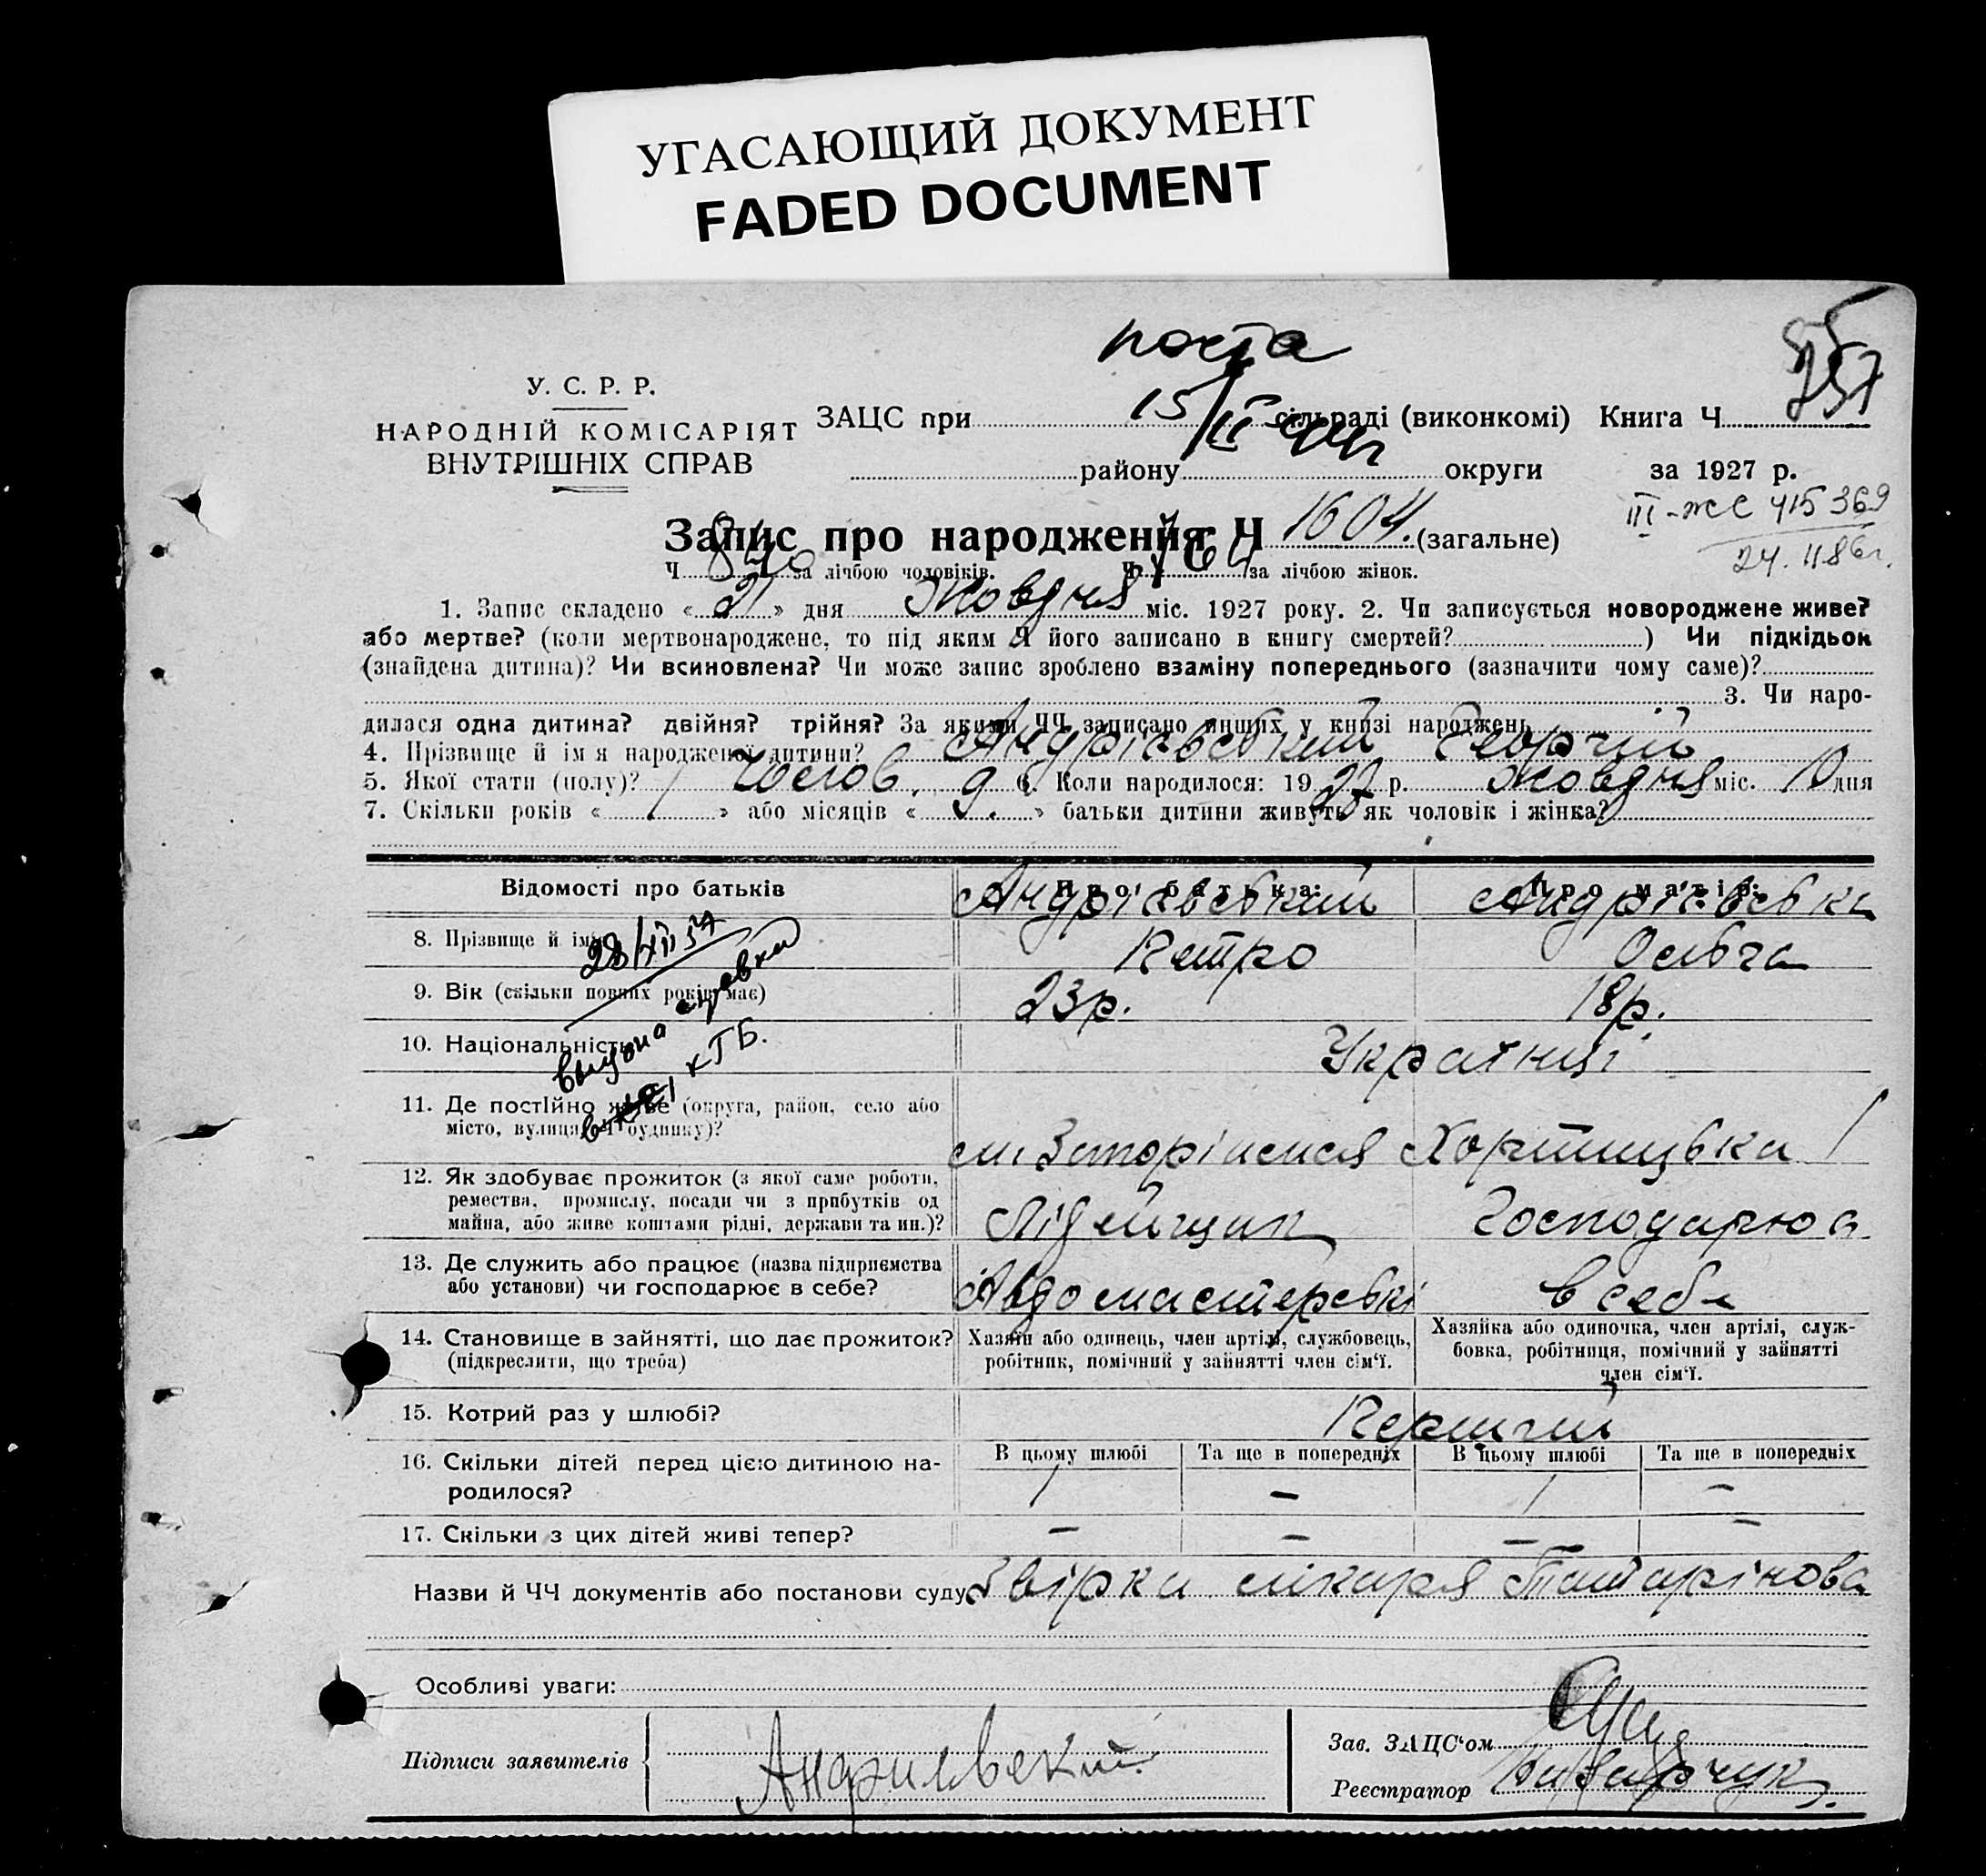 УГАСАЮЩИЙ ДОКУМЕНТ
FADED DOCUMENT
пошта
257
У. С. Р. Р.
НАРОДНІЙ КОМІСАРІЯТ
ВНУТРІШНІХ СПРАВ
ЗАЦС при 15/II сільраді (виконкомі) Книга Ч.
району округи за 1927 р.
III-ЖС 415369
24.1186г.
Запис про народження Ч 1604. (загальне)
Ч 840 за лічбою чоловіків. Ч 764 за лічбою жінок.
1. Запис складено « 21 » дня Жовдня міс. 1927 року. 2. Чи записується новороджене живе?
або мертве? (коли мертвонароджене, то під яким Ч його записано в книгу смертей? ) Чи підкідьок
(знайдена дитина)? Чи всиновлена? Чи може запис зроблено взаміну попереднього (зазначити чому саме)?
3. Чи наро-
дилася одна дитина? двійня? трійня? За якими ЧЧ записано инших у книзі народжень
4. Прізвище й ім'я народженої дитини? Андрієвський Георгій
5. Якої стати (полу)? Чолов. 6. Коли народилося: 1927 р. Жовдня міс. 10 дня
7. Скільки років « 1 » або місяців « 9. » батьки дитини живуть як чоловік і жінка?
Відомості про батьків Про батька: Про матір:
8. Прізвище й ім'я Андрієвський Петро Андрієвська Ольга
9. Вік (скільки повних років має) 23р. 18р.
10. Національність Українці
выдана справка
в КГБ.
11. Де постійно живе (округа, район, село або
місто, вулиця, Ч будинку)?
м. Запоріжжя Хортицька 1
12. Як здобуває прожиток (з якої саме роботи,
ремества, промислу, посади чи з прибутків од
майна, або живе коштами рідні, держави та ин.)?
Лідейщик Господарюа
13. Де служить або працює (назва підприємства
або установи) чи господарює в себе?
Авдомастерські в себе
14. Становище в зайнятті, що дає прожиток?
(підкреслити, що треба)
Хазяїн або одинець, член артілі, службовець,
робітник, помічний у зайнятті член сім'ї.
Хазяйка або одиночка, член артілі, служ-
бовка, робітниця, помічний у зайнятті
член сім'ї.
15. Котрий раз у шлюбі? Перший
В цьому шлюбі Та ще в попередніх В цьому шлюбі Та ще в попередніх
16. Скільки дітей перед цією дитиною на-
родилося?
1 – 1 –
17. Скільки з цих дітей живі тепер? – – – –
Назви й ЧЧ документів або постанови суду Звірка лікаря Татарінова
Особливі уваги:
Підписи заявителів Андриевский
Зав. ЗАЦС'ом
Реєстратор